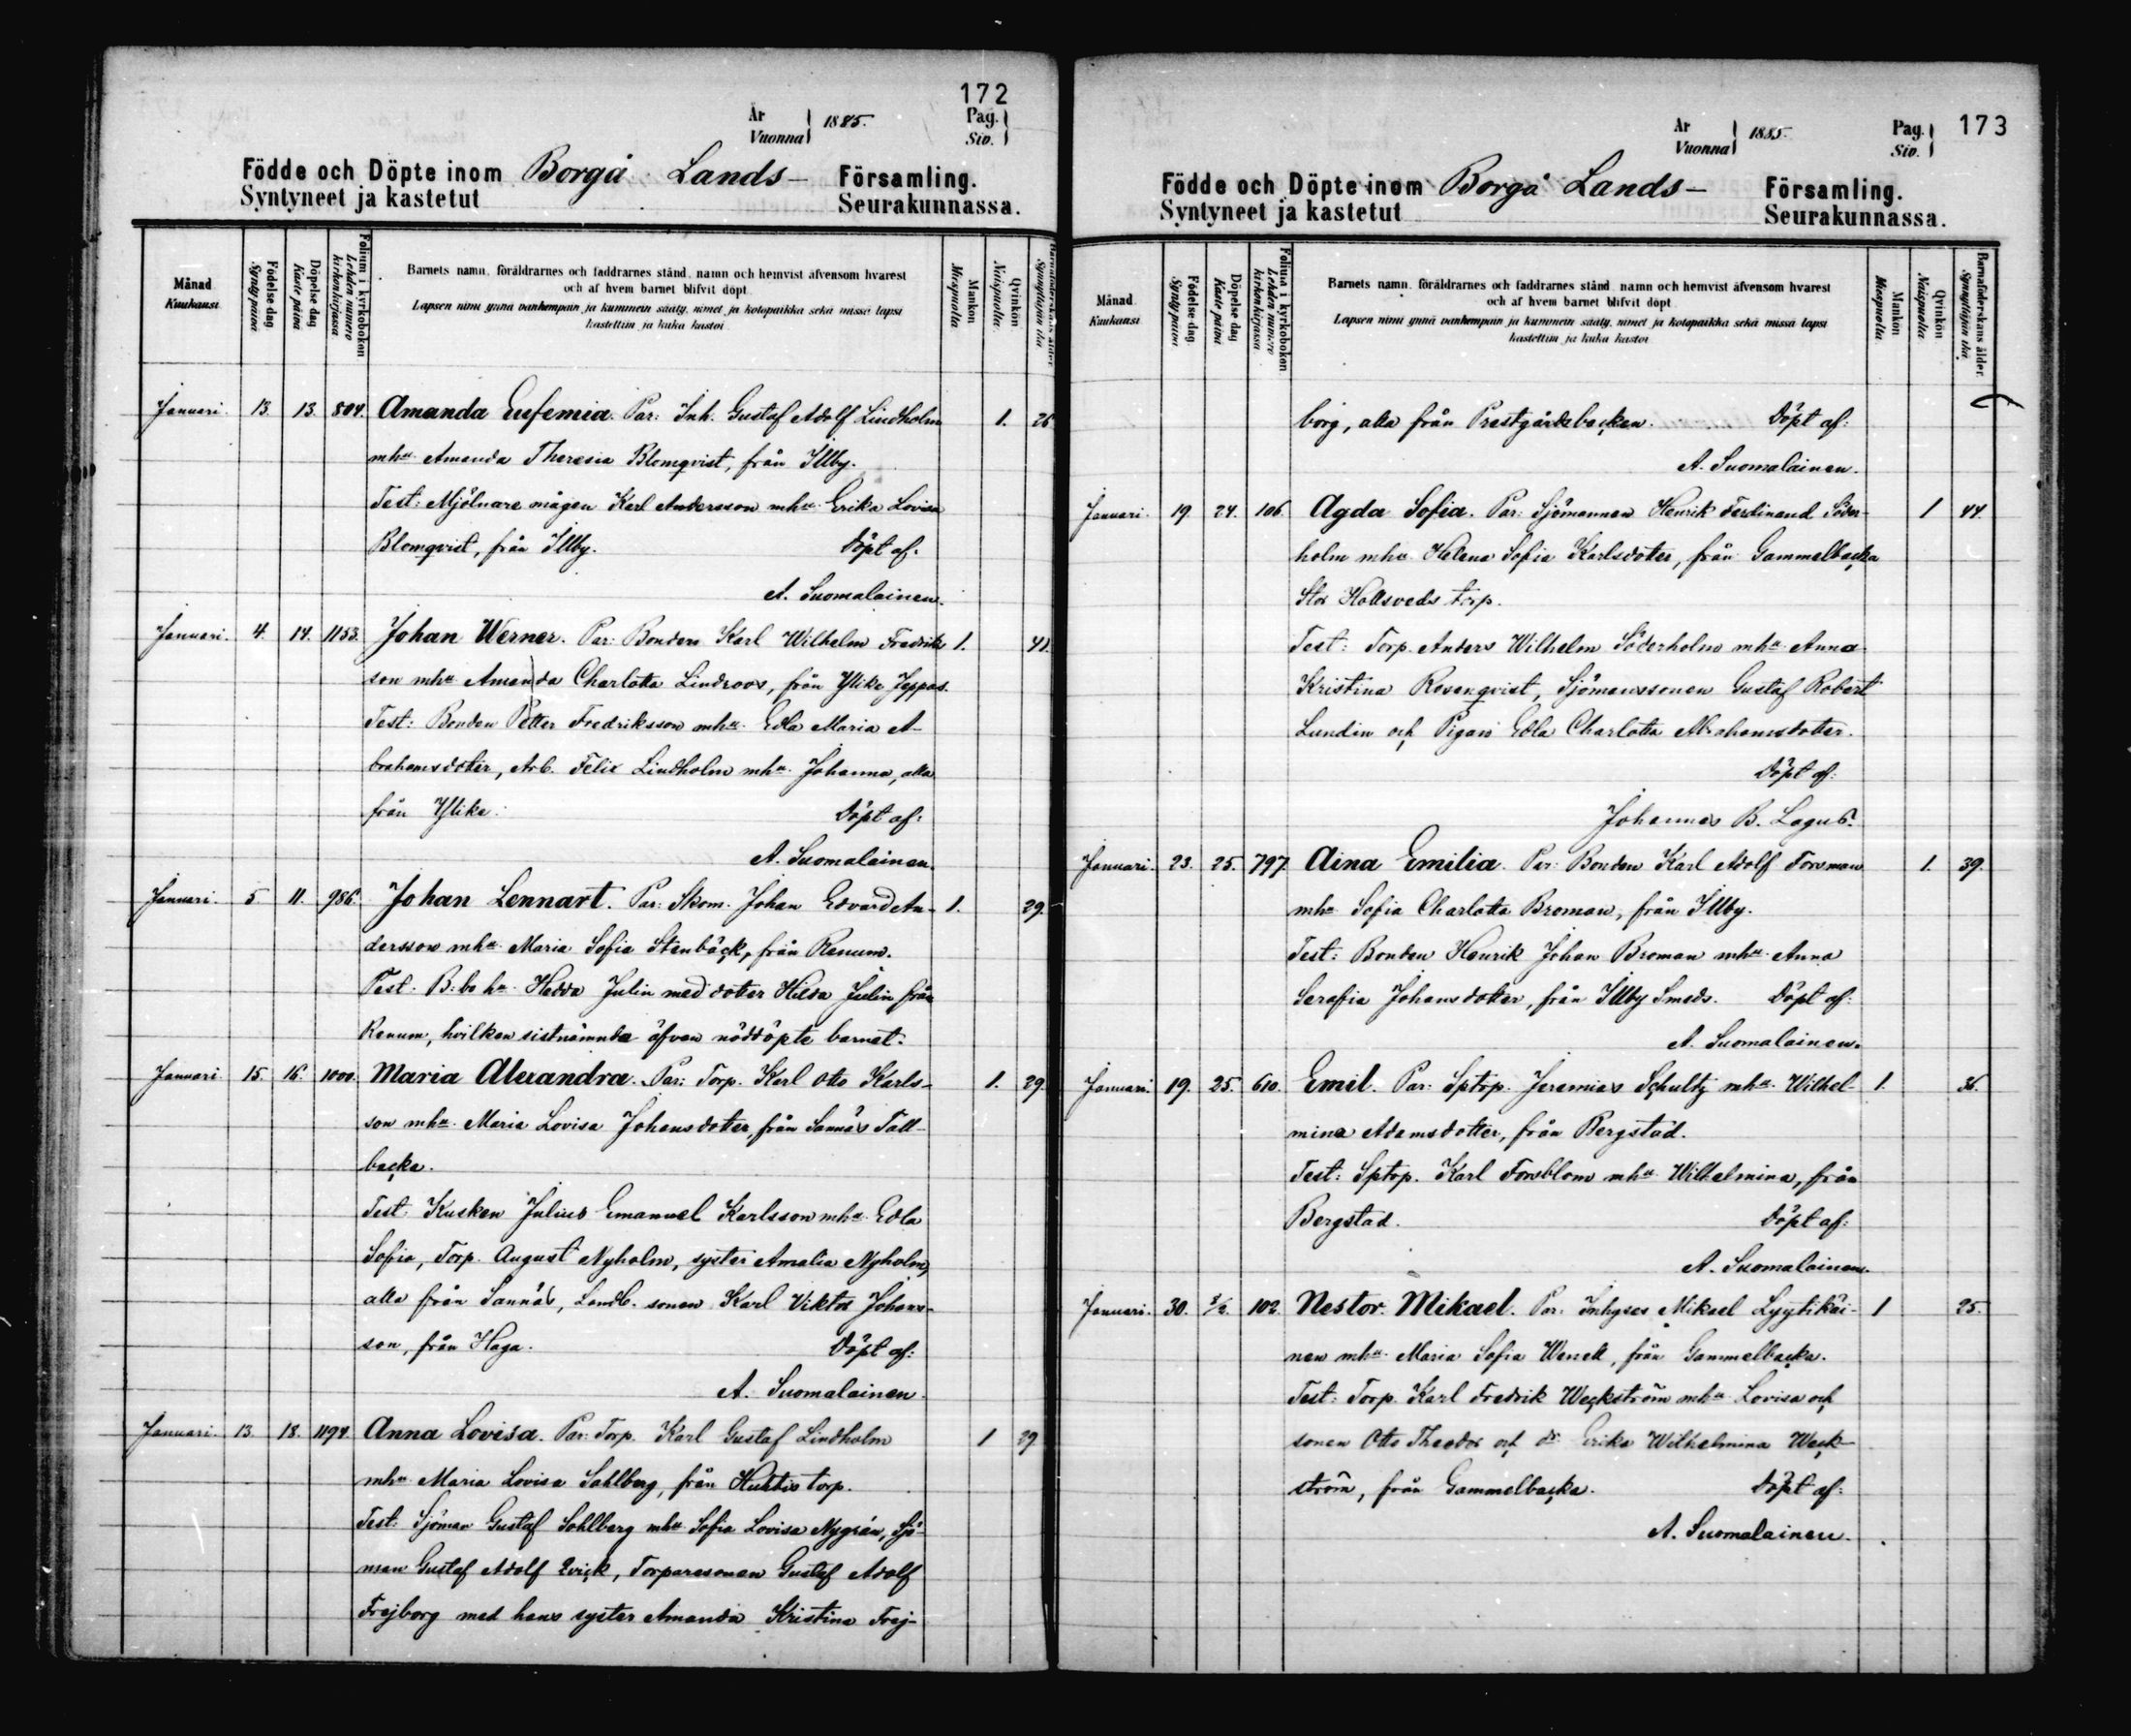 172
År
Vuonna
1885.
Pag.
Siv.
Födde och Döpte inom Borgå Lands- Församling.
Syntyneet ja kastetut Seurakunnassa.
Månad
Kuukausi
Födelse dag
Synty päivä
Döpelse dag
Kaste päivä
Folium i kyrkoboken
Lehden numero kirkonkirjassa
Barnets namn, föräldrarnes och faddrarnes stånd, namn och hemvist äfvensom hvarest
och af hvem barnet blifvit döpt.
Lapsen nimi ynnä vanhempain ja kummein sääty, nimet ja kotopaikka sekä missä lapsi
kastettiin ja kuka kastoi
Mankön
Miespuolta
Qvinkön
Naispuolta
Barnaföderskans ålder.
Synnyttäjän ikä
Januari. 13. 13. 804. Amanda Eufemia. Par: Inh. Gustaf Adolf Lindholm 1. 26
mhu Amanda Theresia Blomqvist, från Illby.
Test: Mjölnare mågen Karl Andersson mhu Erika Lovisa
Blomqvist, från Illby. Döpt af:
A. Suomalainen.
Januari. 4. 14. 1153. Johan Werner. Par: Bonden Karl Wilhelm Fredriks 1. 41.
son mhu Amanda Charlotta Lindroos, från Ylike Jeppas.
Test: Bonden Petter Fredriksson mhu Edla Maria A-
brahamsdotter, Arb. Felix Lindholm mhu Johanna, alla
från Ylike. Döpt af:
A. Suomalainen.
Januari. 5 11. 986. Johan Lennart. Par: Skom. Johan Edvard An- 1. 29.
dersson mhu Maria Sofia Stenbäck, från Renum.
Test. B:de hu Hedda Julin med dotter Hilda Julin från
Renum, hvilken sistnämnda äfven nöddöpte barnet.
Januari 15. 16. 1000. Maria Alexandra. Par: Torp. Karl Otto Karls- 1. 29.
son mhu Maria Lovisa Johansdotter, från Sannäs Tall-
backa.
Test. Kusken Julius Emanuel Karlsson mhu Edla
Sofia, Torp. August Nyholm, syster Amalia Nyholm,
alla från Sannäs, Landb. sonen Karl Viktor Johans-
son, från Haga. Döpt af:
A. Suomalainen.
Januari. 13. 18. 1194. Anna Lovisa. Par: Torp. Karl Gustaf Lindholm 1 29
mhu Maria Lovisa Sahlberg, från Huktis torp.
Test: Sjöman Gustaf Sohlberg mhu Sofia Lovisa Nygrén, Sjö-
man Gustaf Adolf Qvick, Torparesonen Gustaf Adolf
Frejborg med hans syster Amanda Kristina Frej-
173
År
Vuonna
1885.
Pag.
Siv.
Födde och Döpte inom Borgå Lands- Församling.
Syntyneet ja kastetut Seurakunnassa.
Månad
Kuukausi
Födelse dag
Synty päivä
Döpelse dag
Kaste päivä
Folium i kyrkoboken
Lehden numero kirkonkirjassa
Barnets namn, föräldrarnes och faddrarnes stånd, namn och hemvist äfvensom hvarest
och af hvem barnet blifvit döpt
Lapsen nimi ynnä vanhempain ja kummein sääty, nimet ja kotopaikka sekä missä lapsi
kastettiin ja kuka kastoi
Mankön
Miespuolta
Qvinkön
Naispuolta
Barnaföderskans ålder.
Synnyttäjän ikä
borg, alla från Prestgårdsbacken. Döpt af:
A. Suomalainen.
Januari. 19. 24. 106. Agda Sofia. Par: Sjömannen Henrik Ferdinand Söder- 1 44.
holm mhu Helena Sofia Karlsdotter, från Gammelbacka
Stor Hollsveds torp.
Test: Torp. Anders Wilhelm Söderholm mhu Anna
Kristina Rosenqvist, Sjömanssonen Gustaf Robert
Lundin och Pigan Edla Charlotta Abrahamsdotter.
Döpt af:
Johannes B. Lagus.
Januari. 23. 25. 797. Aina Emilia. Par: Bonden Karl Adolf Forsman 1. 39.
mhu Sofia Charlotta Broman, från Illby.
Test: Bonden Henrik Johan Broman mhu Anna
Serafia Johansdotter, från Illby Smeds. Döpt af:
A. Suomalainen.
Januari. 19. 25. 610. Emil. Par: Sptrp. Jeremias Schultz mhu Wilhel- 1. 36.
mina Adamsdotter, från Bergstad.
Test: Sptrp. Karl Forsblom mhu Wilhelmina, från
Bergstad. Döpt af:
A. Suomalainen.
Januari. 30. 3/2. 102. Nestor Mikael. Par: Inhyses Mikael Lyytikäi- 1 25.
nen mhu Maria Sofia Wenell, från Gammelbacka.
Test: Torp. Karl Fredrik Weckström mhu Lovisa och
sonen Otto Theodor och dr Erika Wilhelmina Weck-
ström, från Gammelbacka. Döpt af:
A. Suomalainen.